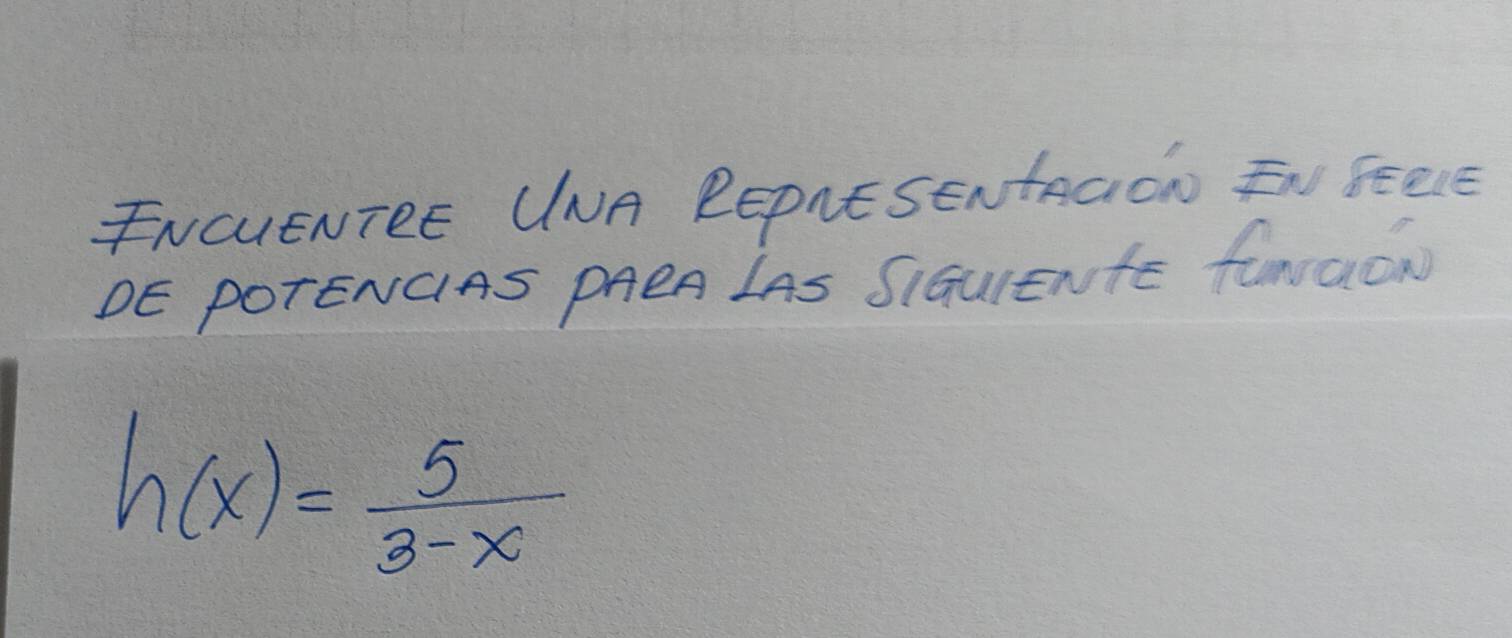 ENCUENTRE UNA REPRESENTACIÓN EN SERIE
DE POTENCIAS PARA LAS SIGUIENTE función
h(x) = 5 / (3 - x)